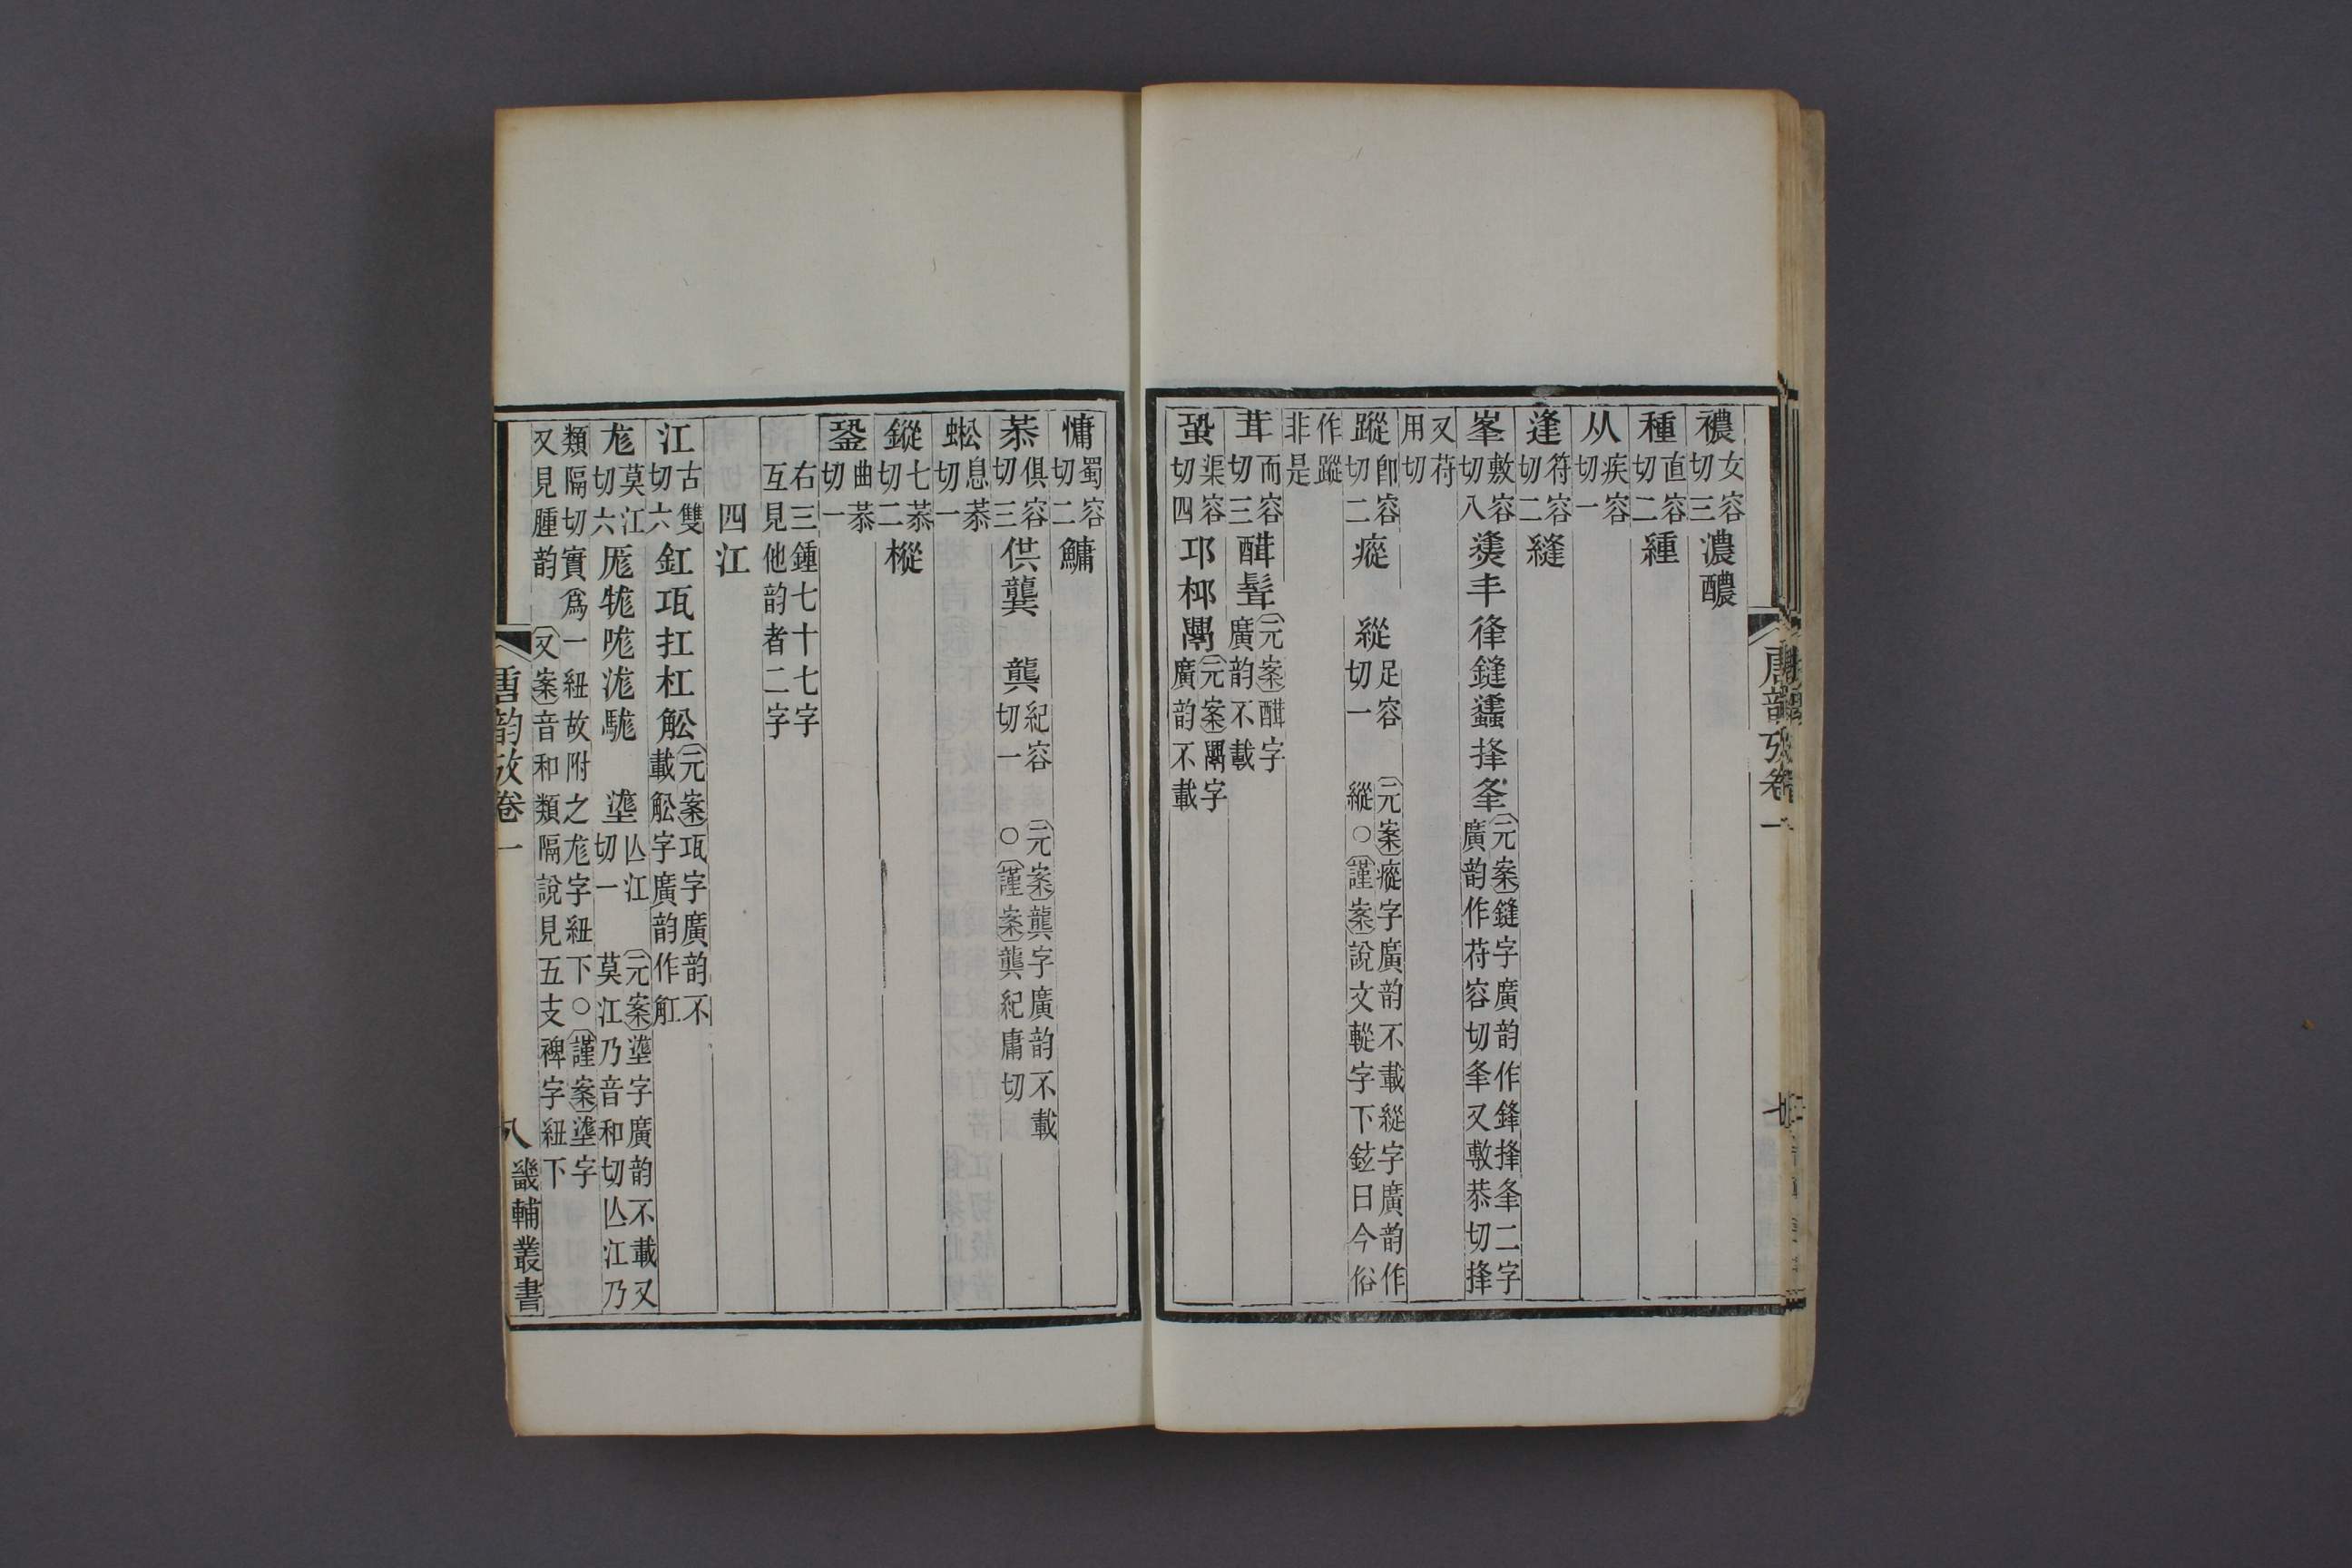 襛女容切三濃醲
種直容切二緟
从疾容切一
逢符容切二縫
峯敷容切八𤎩丰夆鏠蠭捀夆元案鏠字廣韵作鋒捀夆二字廣韵作苻容切夆又敷恭切捀
又苻用切
蹤卽容切二瘲 縱足容切一 元案瘲字廣韵不載縱字廣韵作縱○謹案說文較字下鉉曰今俗
作蹤非是
茸而容切三醏髶元案醏字廣韵不載
蛩渠容切四邛桏𨷯元案𨷯字廣韵不載
唐韵攷卷一
七
慵蜀容切二鱅
恭俱容切三供龔 龏紀容切一 元案龏字廣韵不載○謹案龏紀庸切
蜙息恭切一
鏦七恭切二樅
銎曲恭切一
右三鍾七十七字互見他韵者二字
四江
江古雙切六釭瓨扛杠舩元案瓨字廣韵不載舩字廣韵作舡
尨莫江切六厖牻哤浝駹 𡏞亾江切一 元案𡏞字廣韵不載又莫江乃音和切亾江乃
類隔切實爲一紐故附之尨字紐下○謹案𡏞字又見腫韵 又案音和類隔說見五支裨字紐下
唐韵攷卷一
八
畿輔叢書